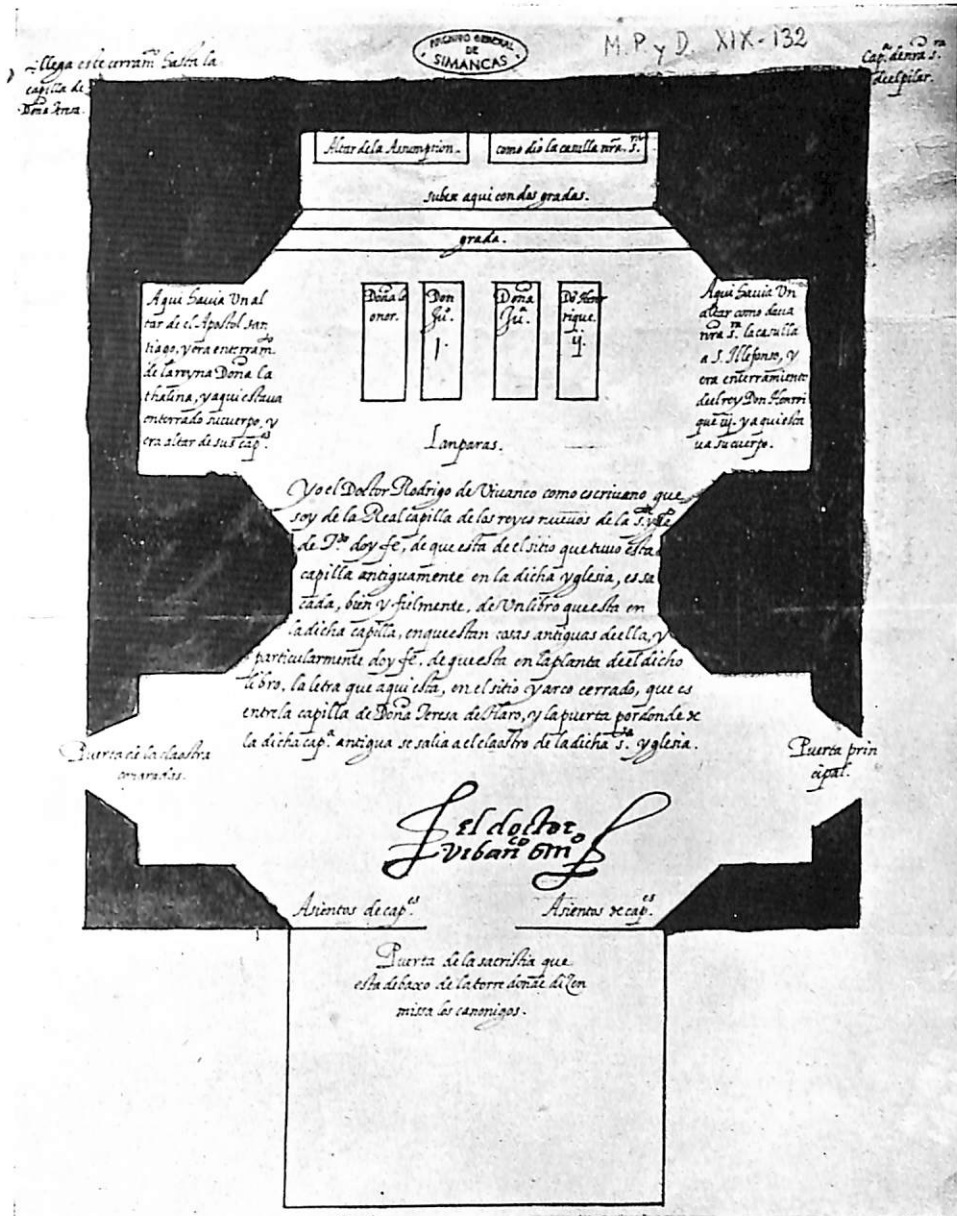 ARCHIVO GENERAL
DE
SIMANCAS
M. P. y D. XIX-132
llega este cerram.to hasta la
capilla de
Doña Teresa.
Cap.a de nra s.ra
de el pilar.
Altar de la Assumption.
como dio la casulla nra. s.ra
suben aqui con dos gradas.
grada.
Aqui havia Un al
tar de el Apostol san
tiago, y era enterram.to
de la reyna Doña Ca
thalina, y aqui estaua
enterrado su cuerpo, y
era altar de sus cap.es
Doña le
onor.
Don
Ju.o
j.
Doña
Ju.a
Dõ Henr
rique.
ij.
Aqui havia Un
altar como daua
nra s.ra la casulla
a S. Illefonso, y
era enterramiento
de el rey Don Henrri
que iij. y aqui esta
ua su cuerpo.
Lanparas.
Yo el Doctor Rodrigo de Viuanco como escriuano que
soy de la Real capilla de los reyes nueuos de la s.ta ygl.a
de T.do doy fe, de que esta de el sitio que tuuo esta
capilla antiguamente en la dicha yglesia, es sa
cada, bien y fielmente, de Un libro que esta en
la dicha capilla, en que estan cosas antiguas de ella, y
particularmente doy fe, de que esta en la planta de el dicho
libro, la letra que aqui esta, en el sitio y arco cerrado, que es
entre la capilla de Doña Teresa de Haro, y la puerta por donde de
la dicha cap.a antigua se salia a el claostro de la dicha s.ta yglesia.
Puerta de la claostra
con gradas.
Puerta prin
cipal.
el doctor
vibanco
Asientos de cap.es
Asientos de cap.es
Puerta de la sacristia que
esta debaxo de la torre donde dizen
missa los canonigos.